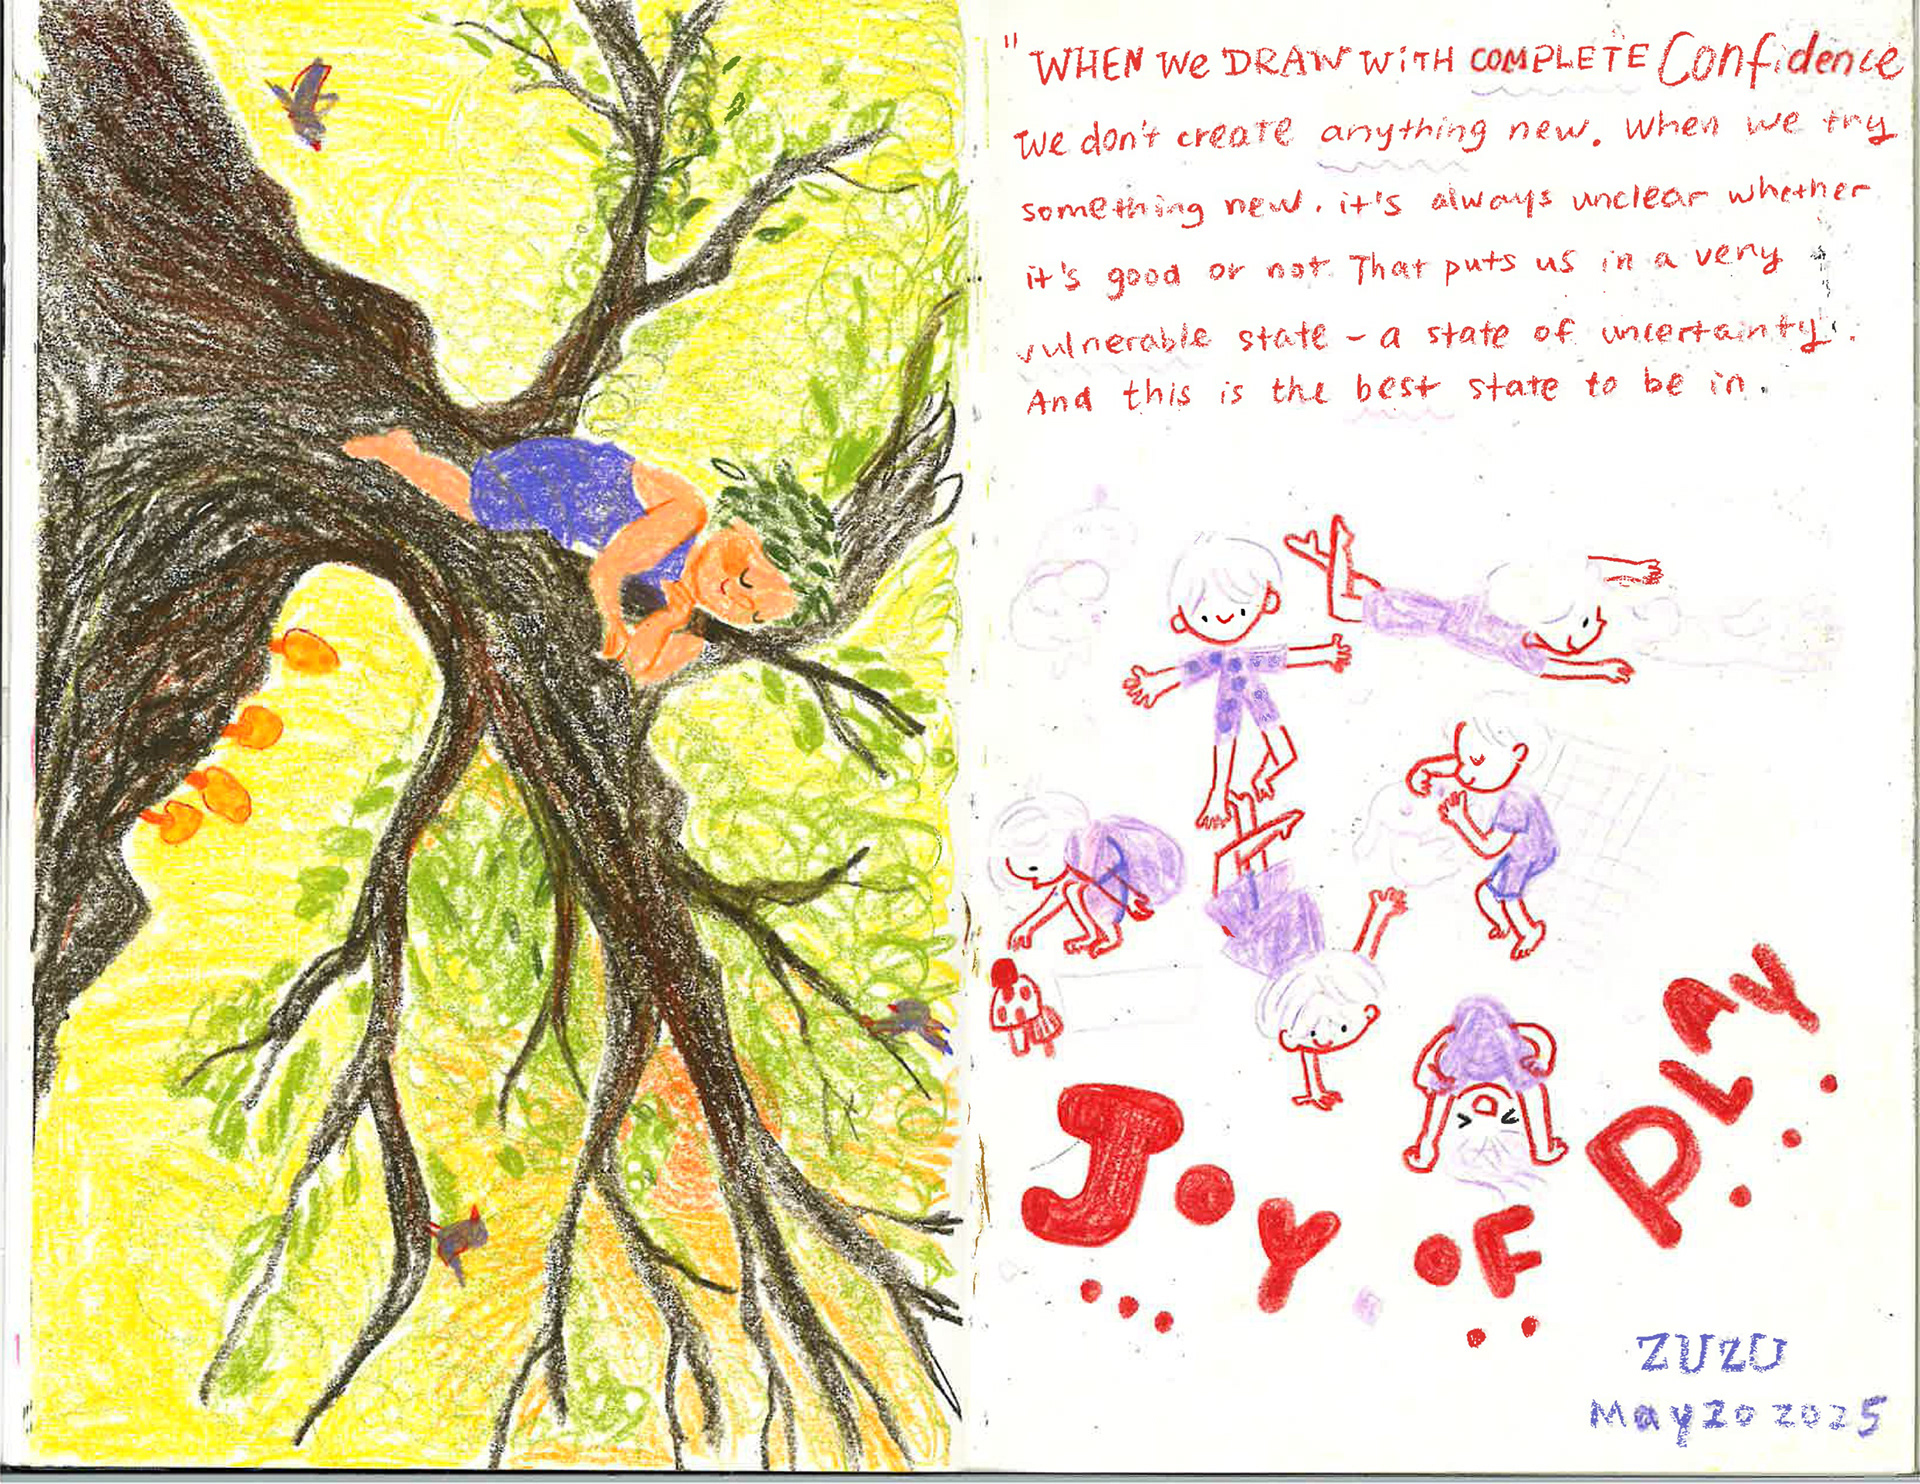 "WHEN We DRAW WITH COMPLETE Confidence
We don't create anything new. When we try
something new. it's always unclear whether
it's good or not. That puts us in a very
vulnerable state - a state of uncertainty.
And this is the best state to be in.
JOY OF PLAY
ZUZU
May 20 2025